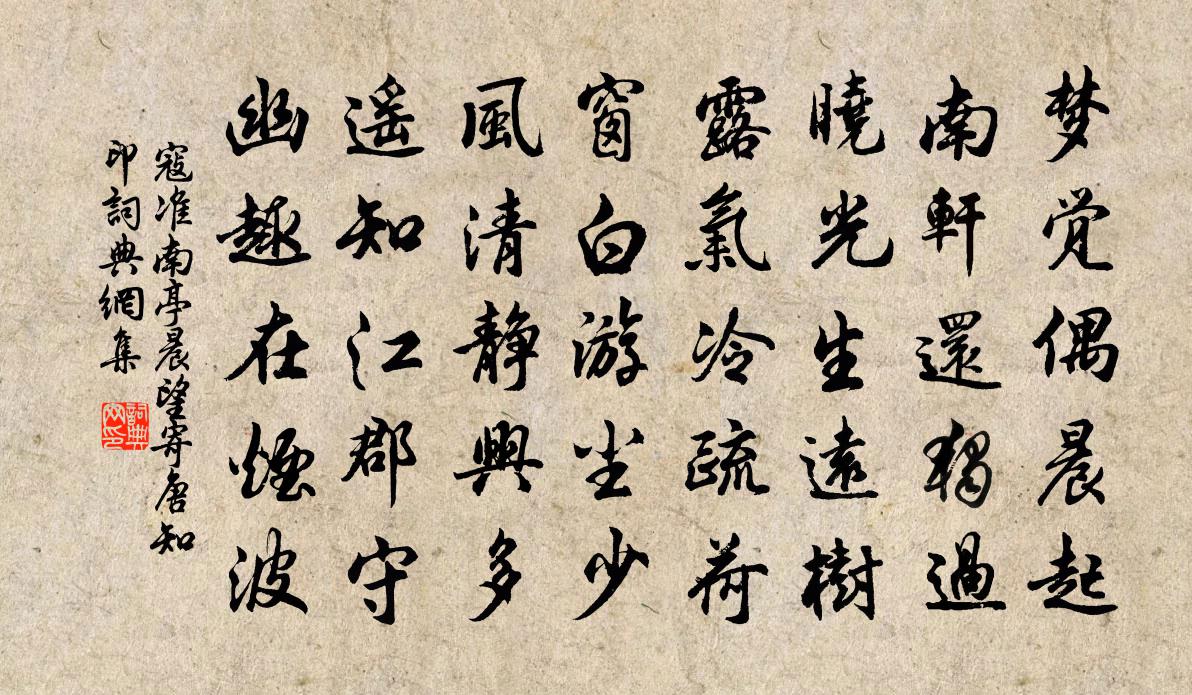 梦觉偶晨起
南軒還獨過
曉光生遠樹
露氣冷疏荷
窗白游尘少
風清静興多
遥知江郡守
幽趣在煙波
寇准南亭晨望寄唐知
印詞典網集
詞典網印